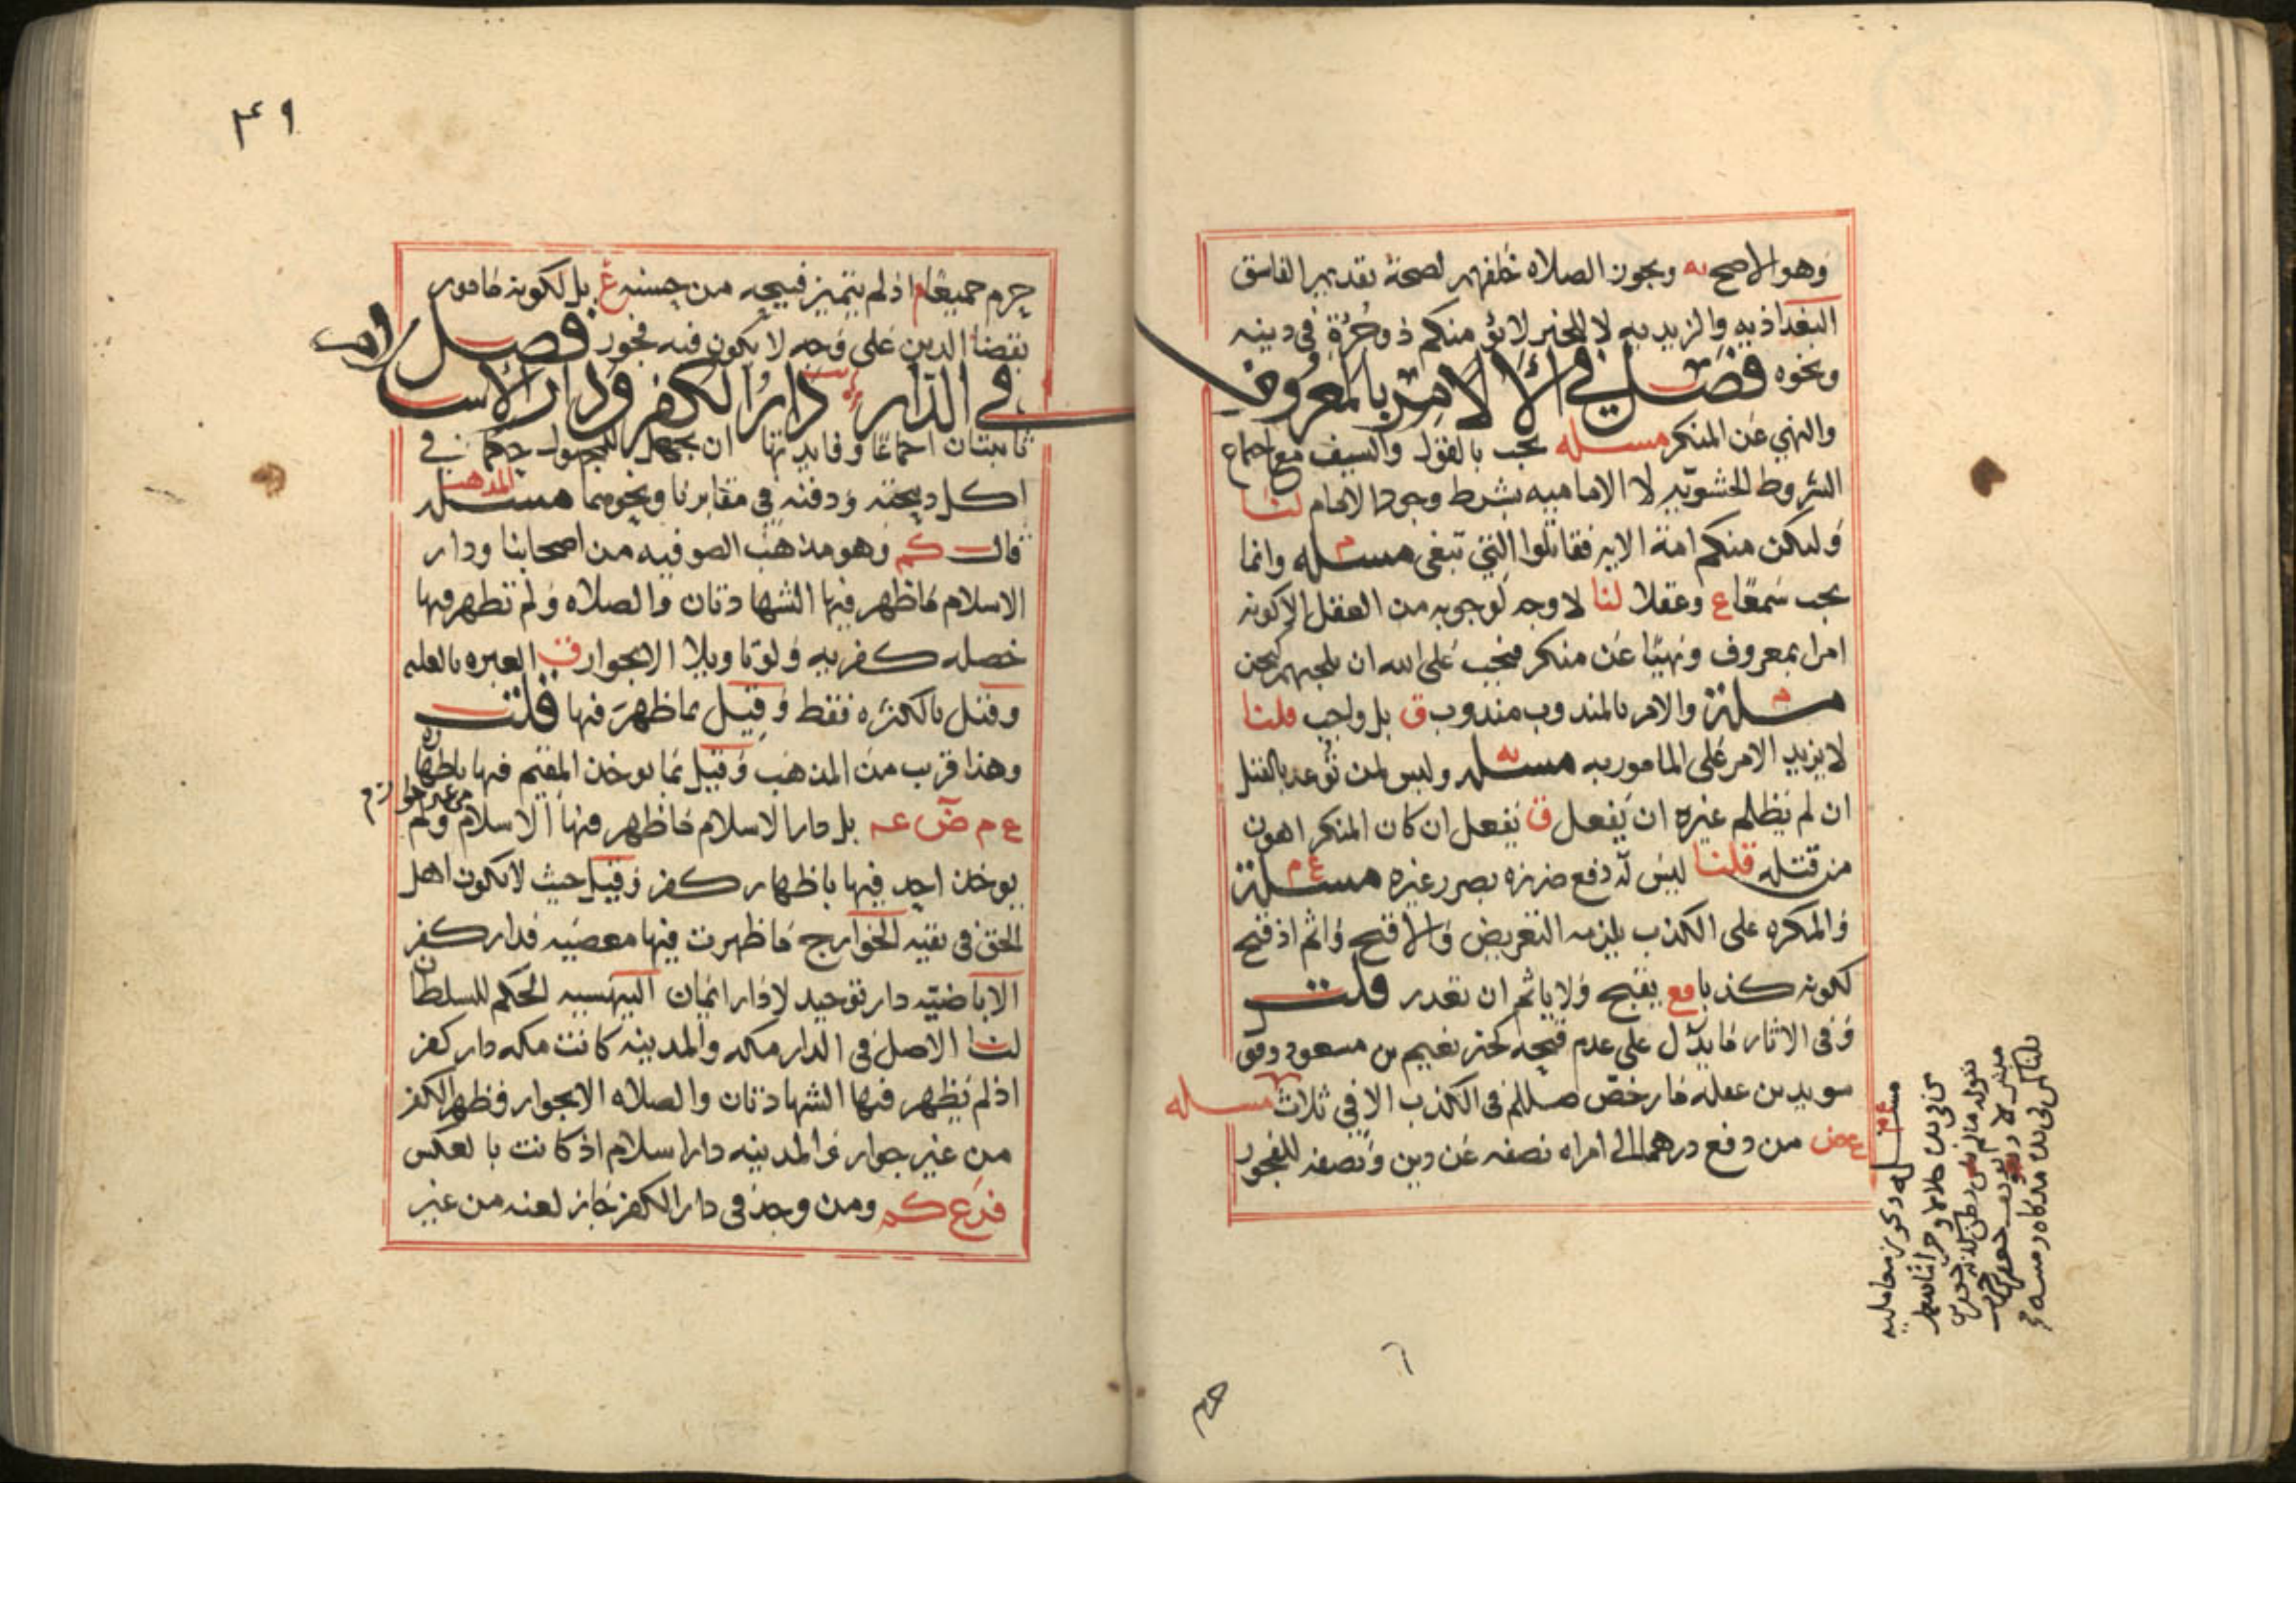 وهو الاصح به ويجوز الصلاه خلفهم لصحة تقديم الفاسق
البغداذيه والزيديه لا للخبر لا يؤمنكم ذو جُرْءَةٍ في دينه
ونحوه فصل في الامر بالمعروف
والنهي عن المنكر مسله يجب بالقول والسيف مع اجماع
الشروط الحشويه لا الاماميه بشرط وجود الامام لنا
ولتكن منكم امة الايه فقاتلوا التي تبغي مسله وانما
يجب سمعًا ع وعقلا لنا لا وجه لوجوبه من العقل الا كونه
امرا بمعروف ونهيًا عن منكر فيجب على الله ان يلجيهم كنحن
مسلة والامر بالمندوب مندوب ق بل واجب قلنا
لا يزيد الامر على المامور به مسله وليس لمن توعد بالقتل
ان لم يظلم غيره ان يفعل ق يفعل ان كان المنكر اهون
من قتله قلنا ليس له دفع ضرره بضرر غيره مسلة ع م
والمكره على الكذب يلزمه التعريض والا قبح واثم اذ قبح
لكونه كذبا مع يقبح ولا ياثم ان تعذر قلت
وفي الاثار ما يدل على عدم قبحه كخبر نعيم بن مسعود وقو
سويد بن غفله ما رخص صللم في الكذب الا في ثلاث مسله
ع ض من دفع درهما الى امراه نصفه عن دين ونصفه للفجور
٤٩
حرم جميعًا م اذ لم يتميز قبيحه من حسنه غ بل لكونه مامور
بقضا الدين على وجه لا يكون فيه فجور فصل
في الدار دار الكفر ودار الاسلام
ثابتتان اجماعًا وفايدتها ان يجعل للمجهول حكما في
اكل ذبيحته ودفنه في مقابرنا ونحوهما مسله المذهب
قال كم وهو مذهب الصوفيه من اصحابنا ودار
الاسلام ما ظهر فيها الشهادتان والصلاه ولم تظهر فيها
خصله كفريه ولو تاويلا الا بجوار ف العبره بالغلبه
وقيل بالكثره فقط وقيل بما ظهر فيها قلت
وهذا قريب من المذهب وقيل بما يوخذ المقيم فيها باظهاره
ع م ض عه بل دار الاسلام ما ظهر فيها الاسلام ولم
يوخذ احد فيها باظهار كفر وقيل حيث لا يكون اهل
الحق في تقيه الخوارج ما ظهرت فيها معصيه فدار كفر
الاباضيه دار توحيد لا دار ايمان البيهسيه الحكم للسلطان
لنا الاصل في الدار مكه والمدينه كانت مكه دار كفر
اذ لم يظهر فيها الشهادتان والصلاه الا بجوار وظهر الكفر
من غير جوار والمدينه دار اسلام اذ كانت بالعكس
فرع كم ومن وجد في دار الكفر جاز لعنه من غير